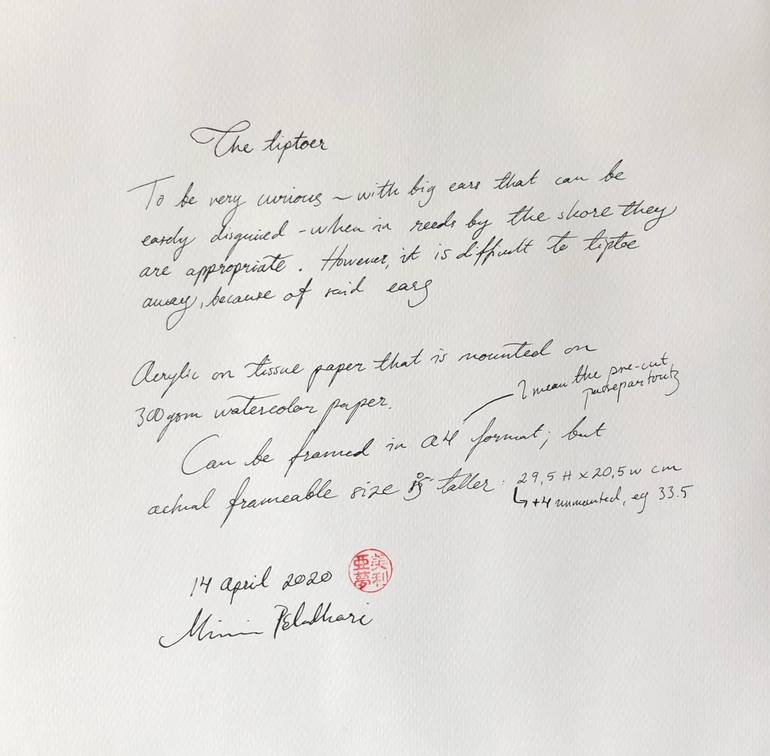 The tiptoer
To be very curious ~ with big ears that can be
easely disguised - when in reeds by the shore they
are appropriate. However, it is difficult to tiptoe
away, because of said ears
Acrylic on tissue paper that is mounted on
300gsm watercolor paper.
I mean the pre-cut
passepartouts
Can be framed in a4 format; but
actual frameable size is taller: 29,5 H x 20,5 w cm
↳ +4 unmounted, eg 33.5
14 April 2020
亜夢美利